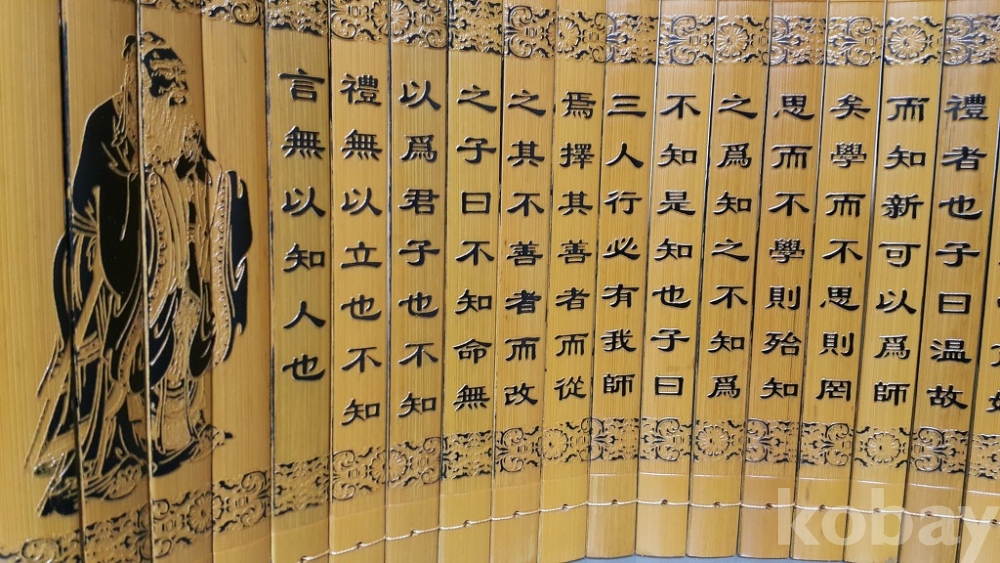 禮者也子曰温故
而知新可以爲師
矣學而不思則罔
思而不學則殆知
之爲知之不知爲
不知是知也子曰
三人行必有我師
焉擇其善者而從
之其不善者而改
之子曰不知命無
以爲君子也不知
禮無以立也不知
言無以知人也
kobay